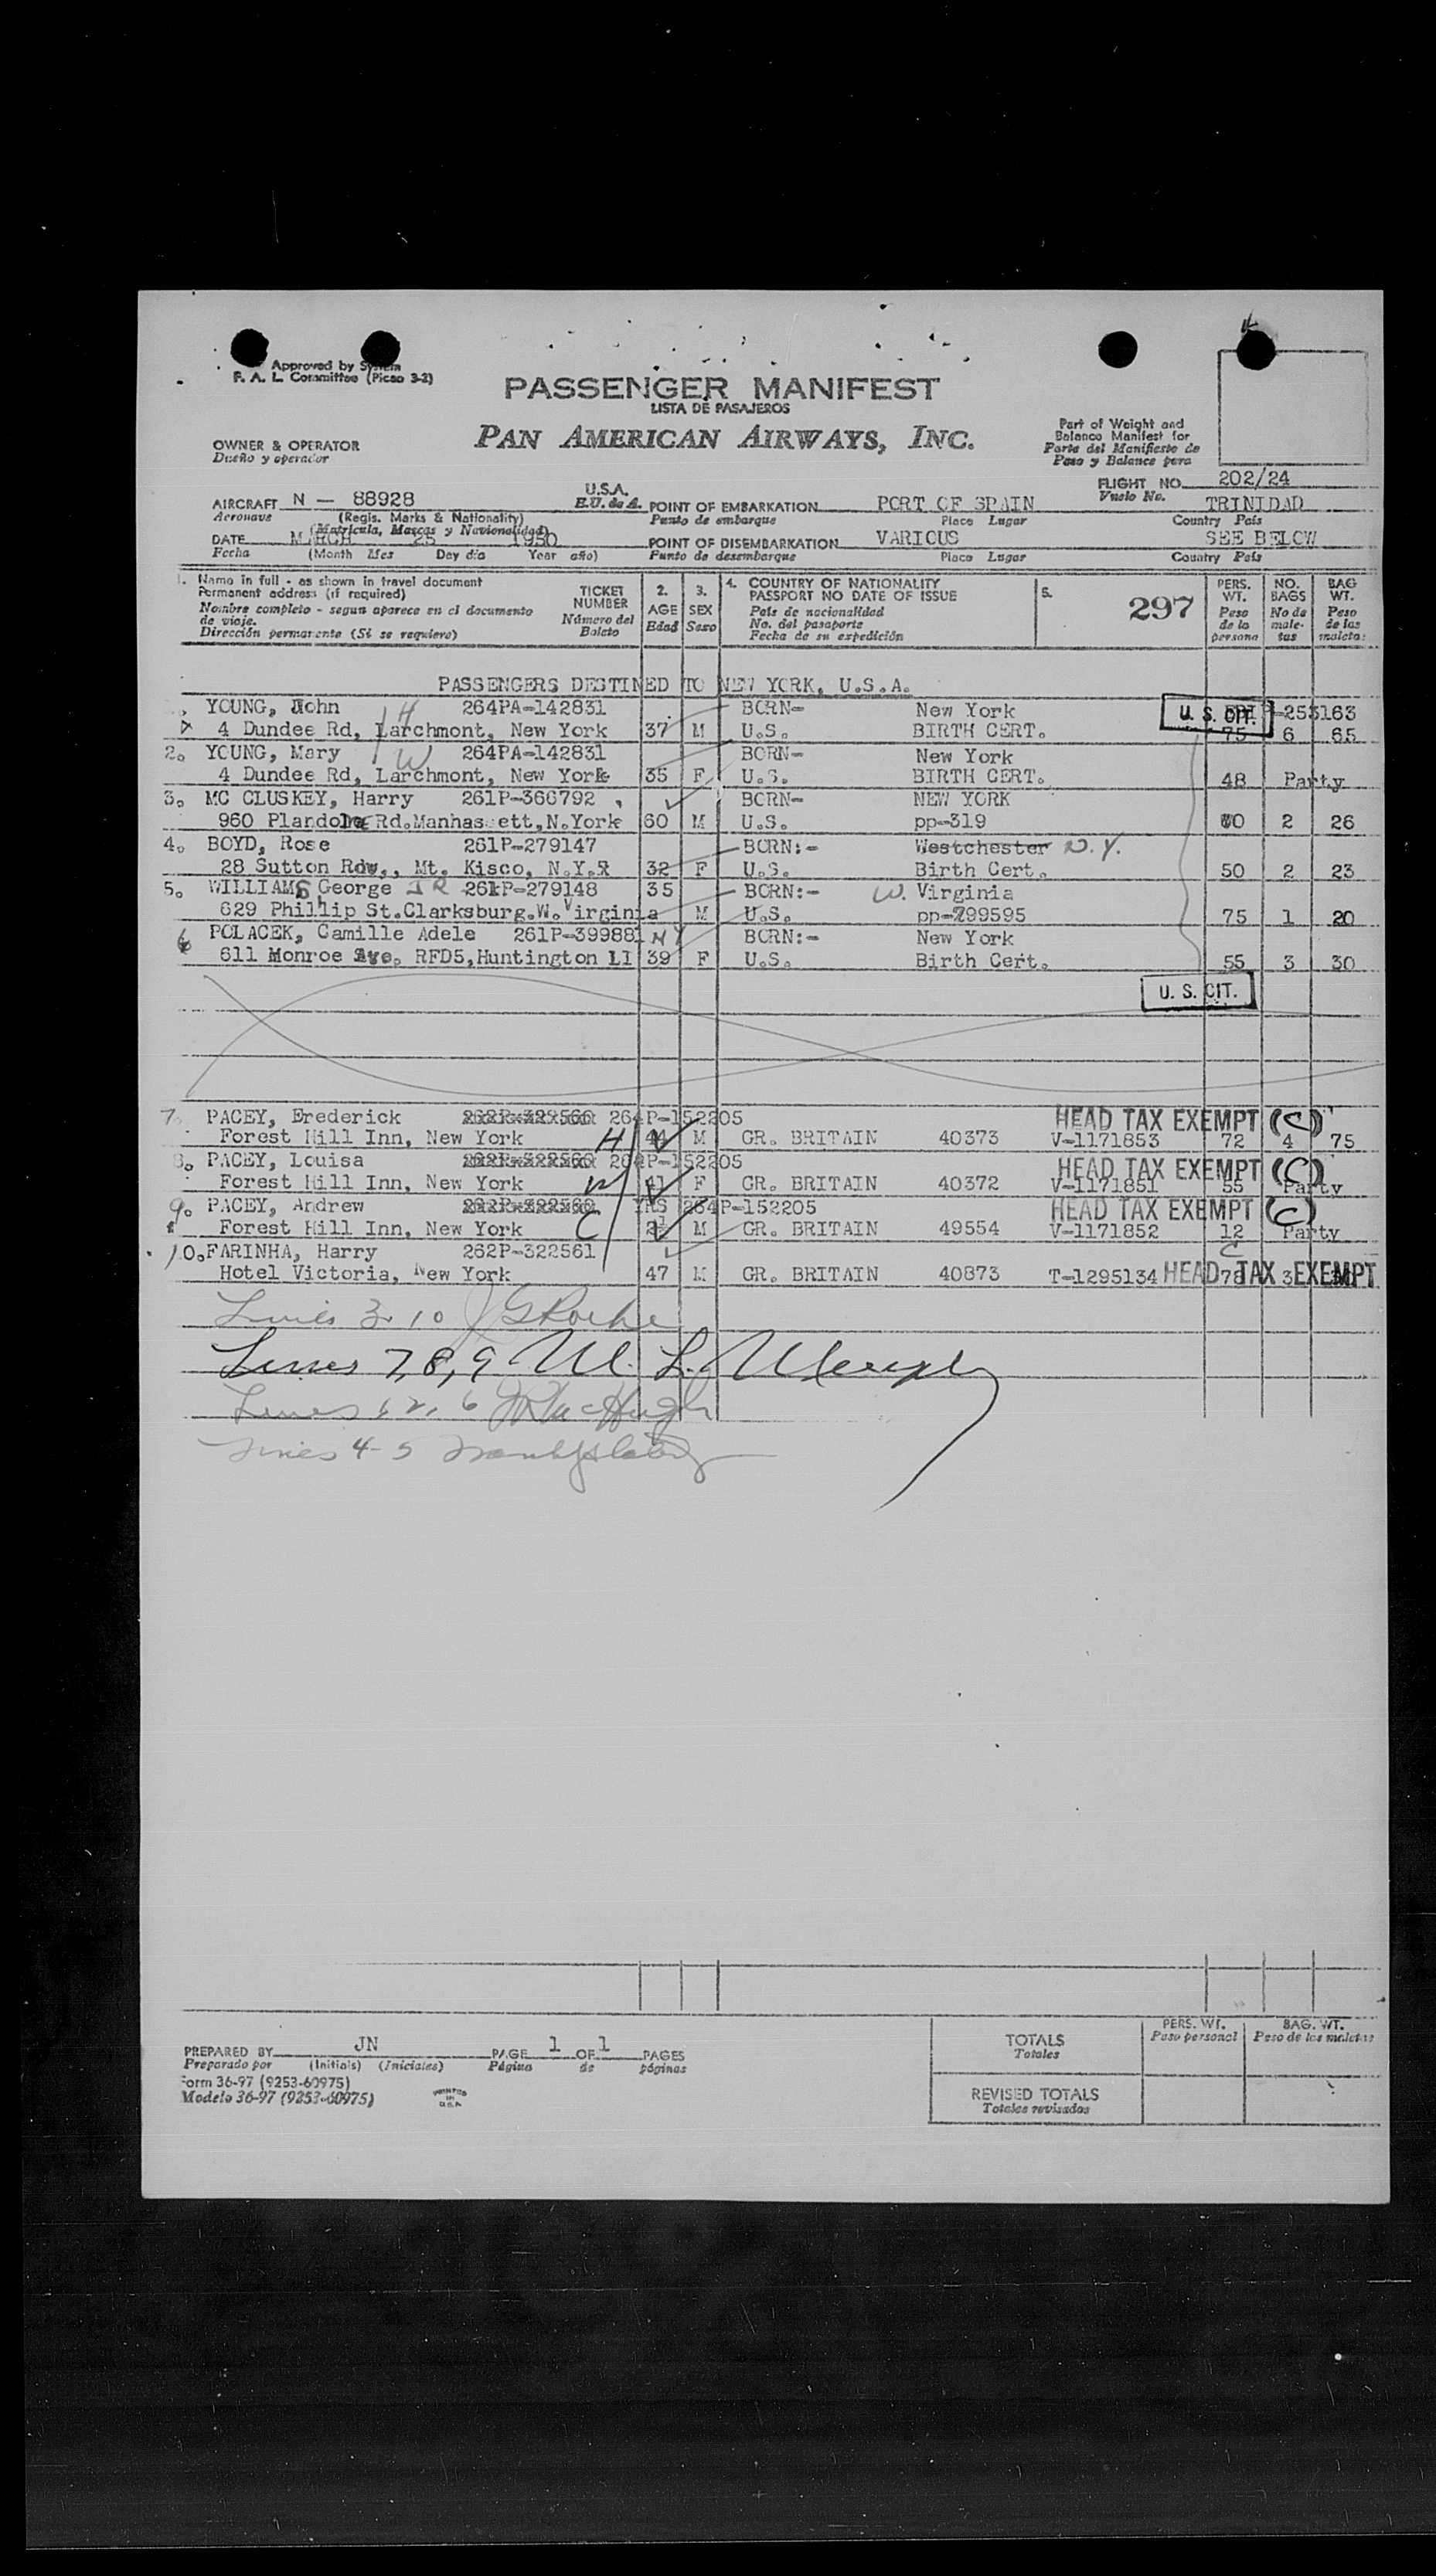 Approved by System
F. A. L. Committee (Picao 3-2)
PASSENGER MANIFEST
LISTA DE PASAJEROS
PAN AMERICAN AIRWAYS, INC.
OWNER & OPERATOR
Dueño y operador
Part of Weight and
Balance Manifest for
Parte del Manifiesto de
Peso y Balance para
FLIGHT NO. 202/24
Vuelo No.
AIRCRAFT N - 88928 U.S.A. POINT OF EMBARKATION PORT OF SPAIN TRINIDAD
Aeronave (Regis. Marks & Nationality) E.U. de A. Punto de embarque Place Lugar Country País
(Matricula, Marcas y Nacionalidad)
DATE MARCH 25 1950 POINT OF DISEMBARKATION VARIOUS SEE BELOW
Fecha (Month Mes Day día Year año) Punto de desembarque Place Lugar Country País
1. Name in full - as shown in travel document
Permanent address (if required)
Nombre completo - segun aparece en el documento
de viaje.
Dirección permanente (Si se requiere)
TICKET
NUMBER
Número del
Boleto
2.
AGE
Edad
3.
SEX
Sexo
4. COUNTRY OF NATIONALITY
PASSPORT NO DATE OF ISSUE
País de nacionalidad
No. del pasaporte
Fecha de su expedición
5.
297
PERS.
WT.
Peso
de la
persona
NO.
BAGS
No de
male-
tas
BAG
WT.
Peso
de las
maletas
PASSENGERS DESTINED TO NEW YORK, U.S.A.
YOUNG, John H 264PA-142831 BORN- New York U. S. CIT. -253163
4 Dundee Rd, Larchmont, New York 37 M U.S. BIRTH CERT. 75 6 65
2. YOUNG, Mary W 264PA-142831 BORN- New York
4 Dundee Rd, Larchmont, New York 35 F U.S. BIRTH CERT. 48 Party
3. MC CLUSKEY, Harry 261P-366792 BORN- NEW YORK
960 Plandome Rd.Manhassett,N.York 60 M U.S. pp-319 70 2 26
4. BOYD, Rose 261P-279147 BORN:- Westchester N.Y.
28 Sutton Row,, Mt. Kisco, N.Y. 32 F U.S. Birth Cert. 50 2 23
5. WILLIAMS, George JR 261P-279148 35 BORN:- W. Virginia
629 Phillip St.Clarksburg.W.Virginia M U.S. pp-299595 75 1 20
6 POLACEK, Camille Adele 261P-399881 NY BORN:- New York
611 Monroe Ave. RFD5,Huntington LI 39 F U.S. Birth Cert. 55 3 30
U. S. CIT.
7. PACEY, Frederick 262P-322560 264P-152205 HEAD TAX EXEMPT (C)
Forest Hill Inn, New York H 44 M GR. BRITAIN 40373 V-1171853 72 4 75
8. PACEY, Louisa 262P-322560 264P-152205 HEAD TAX EXEMPT (C)
Forest Hill Inn, New York W 41 F GR. BRITAIN 40372 V-1171851 55 Party
9. PACEY, Andrew 262P-322560 YRS 264P-152205 HEAD TAX EXEMPT (C)
Forest Hill Inn, New York C 2½ M GR. BRITAIN 49554 V-1171852 12 Party
10. FARINHA, Harry 262P-322561 C
Hotel Victoria, New York 47 M GR. BRITAIN 40873 T-1295134 HEAD TAX EXEMPT 78 3
Lines 3. 10 J G Roche
Lines 7,8,9 M. L. Murphy
Lines 1 2, 6 MacHugh
Lines 4-5
PREPARED BY JN PAGE 1 OF 1 PAGES
Preparado por (Initials) (Iniciales) Página de páginas
Form 36-97 (9253-60975)
Modelo 36-97 (9253-60975)
PRINTED
IN
U.S.A.
PERS. WT.
Peso personal
BAG. WT.
Peso de las maletas
TOTALS
Totales
REVISED TOTALS
Totales revisados